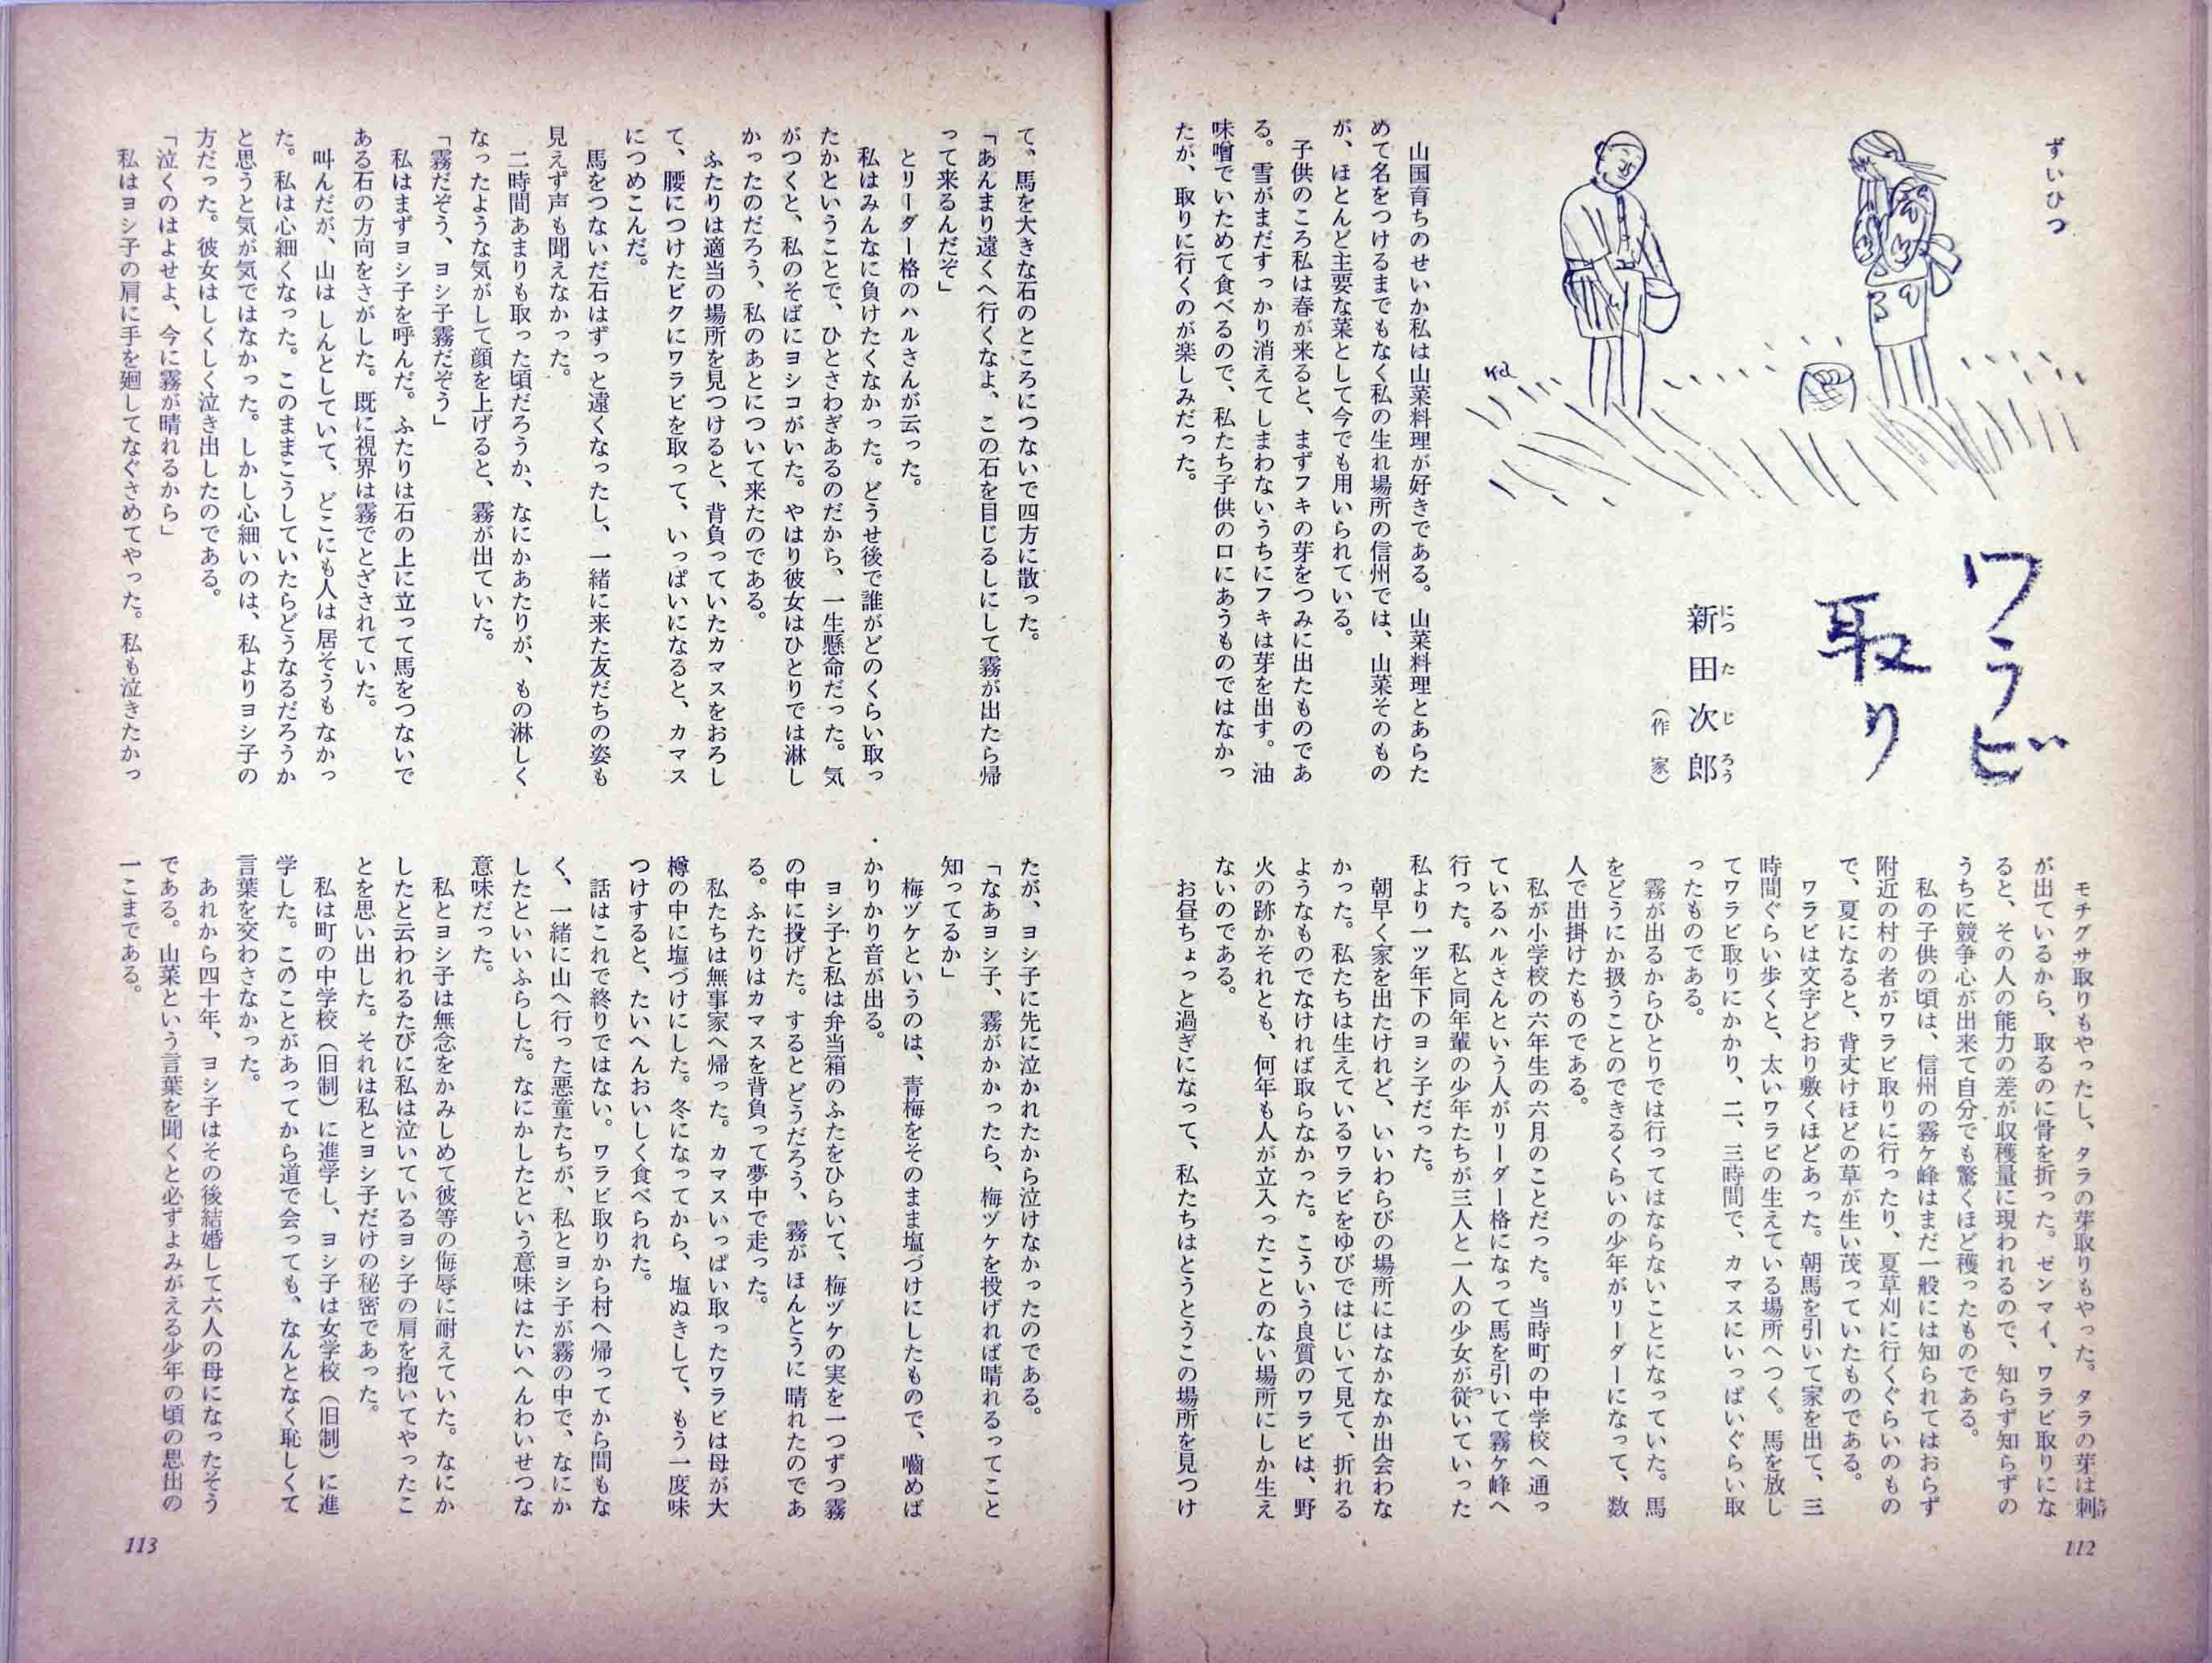 ずいひつ
ワラビ
取り
新田次郎
にったじろう
（作　家）
山国育ちのせいか私は山菜料理が好きである。山菜料理とあらた
めて名をつけるまでもなく私の生れ場所の信州では、山菜そのもの
が、ほとんど主要な菜として今でも用いられている。
子供のころ私は春が来ると、まずフキの芽をつみに出たものであ
る。雪がまだすっかり消えてしまわないうちにフキは芽を出す。油
味噌でいためて食べるので、私たち子供の口にあうものではなかっ
たが、取りに行くのが楽しみだった。
モチグサ取りもやったし、タラの芽取りもやった。タラの芽は刺
が出ているから、取るのに骨を折った。ゼンマイ、ワラビ取りにな
ると、その人の能力の差が収穫量に現われるので、知らず知らずの
うちに競争心が出来て自分でも驚くほど穫ったものである。
私の子供の頃は、信州の霧ケ峰はまだ一般には知られてはおらず
附近の村の者がワラビ取りに行ったり、夏草刈に行くぐらいのもの
で、夏になると、背丈けほどの草が生い茂っていたものである。
ワラビは文字どおり敷くほどあった。朝馬を引いて家を出て、三
時間ぐらい歩くと、太いワラビの生えている場所へつく。馬を放し
てワラビ取りにかかり、二、三時間で、カマスにいっぱいぐらい取
ったものである。
霧が出るからひとりでは行ってはならないことになっていた。馬
をどうにか扱うことのできるくらいの少年がリーダーになって、数
人で出掛けたものである。
私が小学校の六年生の六月のことだった。当時町の中学校へ通っ
ているハルさんという人がリーダー格になって馬を引いて霧ケ峰へ
行った。私と同年輩の少年たちが三人と一人の少女が従いていった
私より一ツ年下のヨシ子だった。
朝早く家を出たけれど、いいわらびの場所にはなかなか出会わな
かった。私たちは生えているワラビをゆびではじいて見て、折れる
ようなものでなければ取らなかった。こういう良質のワラビは、野
火の跡かそれとも、何年も人が立入ったことのない場所にしか生え
ないのである。
お昼ちょっと過ぎになって、私たちはとうとうこの場所を見つけ
112
て、馬を大きな石のところにつないで四方に散った。
「あんまり遠くへ行くなよ、この石を目じるしにして霧が出たら帰
って来るんだぞ」
とリーダー格のハルさんが云った。
私はみんなに負けたくなかった。どうせ後で誰がどのくらい取っ
たかということで、ひとさわぎあるのだから、一生懸命だった。気
がつくと、私のそばにヨシコがいた。やはり彼女はひとりでは淋し
かったのだろう、私のあとについて来たのである。
ふたりは適当の場所を見つけると、背負っていたカマスをおろし
て、腰につけたビクにワラビを取って、いっぱいになると、カマス
につめこんだ。
馬をつないだ石はずっと遠くなったし、一緒に来た友だちの姿も
見えず声も聞えなかった。
二時間あまりも取った頃だろうか、なにかあたりが、もの淋しく
なったような気がして顔を上げると、霧が出ていた。
「霧だぞう、ヨシ子霧だぞう」
私はまずヨシ子を呼んだ。ふたりは石の上に立って馬をつないで
ある石の方向をさがした。既に視界は霧でとざされていた。
叫んだが、山はしんとしていて、どこにも人は居そうもなかっ
た。私は心細くなった。このままこうしていたらどうなるだろうか
と思うと気が気ではなかった。しかし心細いのは、私よりヨシ子の
方だった。彼女はしくしく泣き出したのである。
「泣くのはよせよ、今に霧が晴れるから」
私はヨシ子の肩に手を廻してなぐさめてやった。私も泣きたかっ
たが、ヨシ子に先に泣かれたから泣けなかったのである。
「なあヨシ子、霧がかかったら、梅ヅケを投げれば晴れるってこと
知ってるか」
梅ヅケというのは、青梅をそのまま塩づけにしたもので、嚙めば
かりかり音が出る。
ヨシ子と私は弁当箱のふたをひらいて、梅ヅケの実を一つずつ霧
の中に投げた。するとどうだろう、霧がほんとうに晴れたのであ
る。ふたりはカマスを背負って夢中で走った。
私たちは無事家へ帰った。カマスいっぱい取ったワラビは母が大
樽の中に塩づけにした。冬になってから、塩ぬきして、もう一度味
つけすると、たいへんおいしく食べられた。
話はこれで終りではない。ワラビ取りから村へ帰ってから間もな
く、一緒に山へ行った悪童たちが、私とヨシ子が霧の中で、なにか
したといいふらした。なにかしたという意味はたいへんわいせつな
意味だった。
私とヨシ子は無念をかみしめて彼等の侮辱に耐えていた。なにか
したと云われるたびに私は泣いているヨシ子の肩を抱いてやったこ
とを思い出した。それは私とヨシ子だけの秘密であった。
私は町の中学校（旧制）に進学し、ヨシ子は女学校（旧制）に進
学した。このことがあってから道で会っても、なんとなく恥しくて
言葉を交わさなかった。
あれから四十年、ヨシ子はその後結婚して六人の母になったそう
である。山菜という言葉を聞くと必ずよみがえる少年の頃の思出の
一こまである。
113